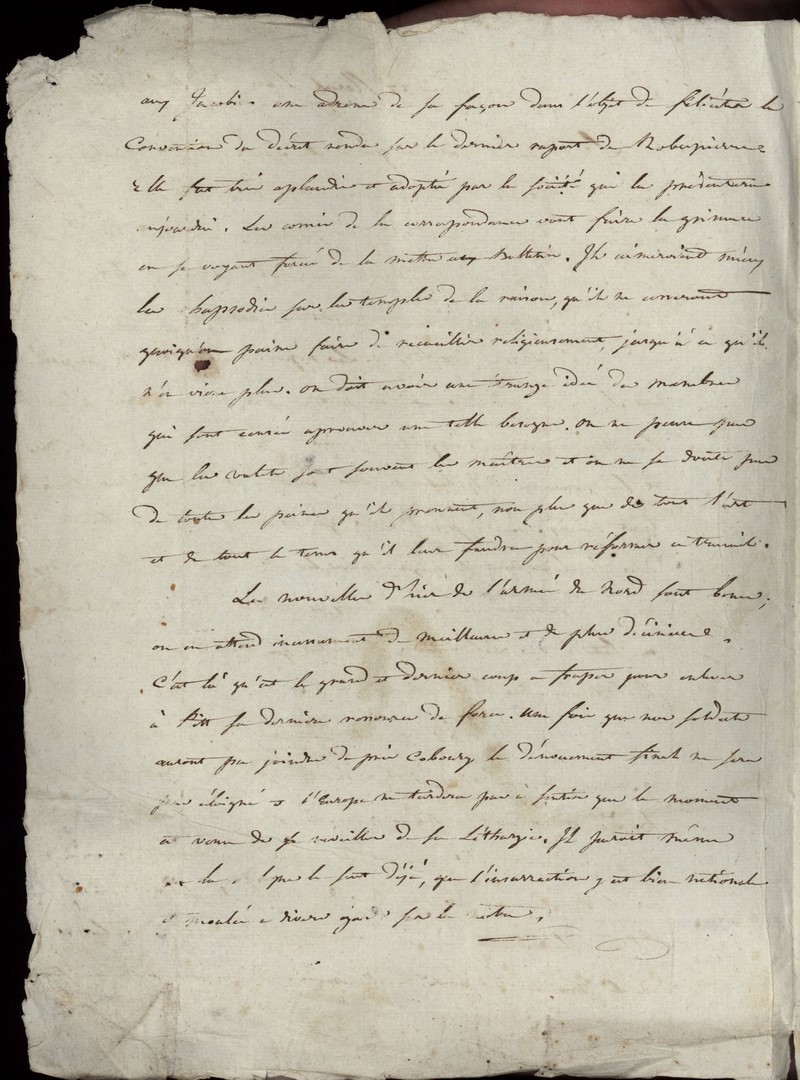 aux Jacobi. une adresse de sa façon dans l'objet de féliciter la
Convention du décret rendu sur le dernier raport de Robespierre
Elle fut très aplaudie et adoptée par la société qui la présentera
aujourdui. Les comis de la correspondance vont faire la grimace
en se voyant forcés de la mettre au Bulletin. Ils aimeroient mieux
les rapsodies sur les temples de la raison, qu'ils ne cesseront
quoiqu'on puisse faire de recueillir religieusement, jusqu'à ce qu'il
n'en vienne plus. on doit avoir une étrange idée des membres
qui sont censés aprouver une telle besogne. on ne pense pas
que les valets sont souvent les maîtres et on ne se doute pas
de toute la peine qu'ils prennent, non plus que de tout l'art
et de tout le tems qu'il leur faudra pour réformer ce travail.
Les nouvelles d'hier de l'armée du Nord sont bonnes;
on en attend incessament de meilleures et de plus décisives.
C'est là qu'est le grand et dernier coup a fraper pour enlever
à Pitt sa dernière ressource de force. une fois que nos soldats
auront pu joindre de près Cobourg le dénouement final ne sera
pas éloigné et l'Europe ne tardera pas à sentir que le moment
est venu de se reveiller de sa Léthargie. Il paroit même
que l'insurrection y est bien nationale